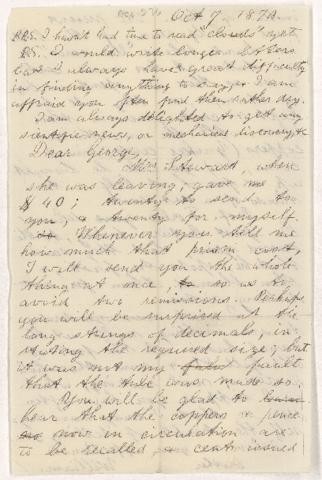 Oct 7 1870.
P.P.S. I havn't had time to read "clouds" yet
P.S. I would write longer letters
but I always have great difficulty
in finding anything to say, & I am
affraid you often find them rather dry.
I am always delighted to get any
scientific news, or mechanical discovery, &c
Dear George,
Miss Steward, when
she was leaving, gave me
$40; twenty to send to
you, & twenty for myself.
Whenever you tell me
how much that prism cost,
I will send you the whole
thing at once, so as to
avoid two remissions. Perhaps
you will be surprised at the
long strings of decimals, in-
dicating the required size; but
it was not my fault
that the tube was made so.
You will be glad to
hear that the coppers & pence
now in circulation are
to be recalled, & cents issued